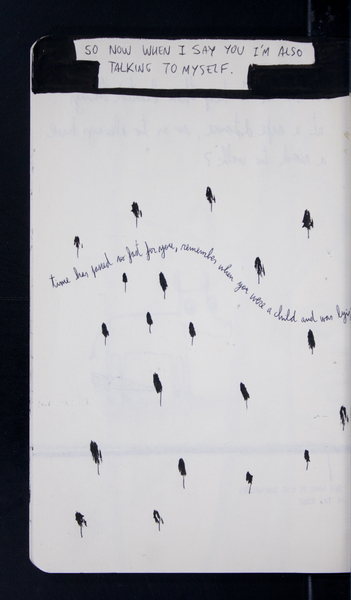 SO NOW WHEN I SAY YOU I'M ALSO
TALKING TO MYSELF.
time has passed so fast for you, remember when you were a child and was